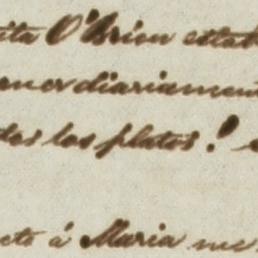 ita O'Brien estab
omer diariament
dos los platos!
á Maria me